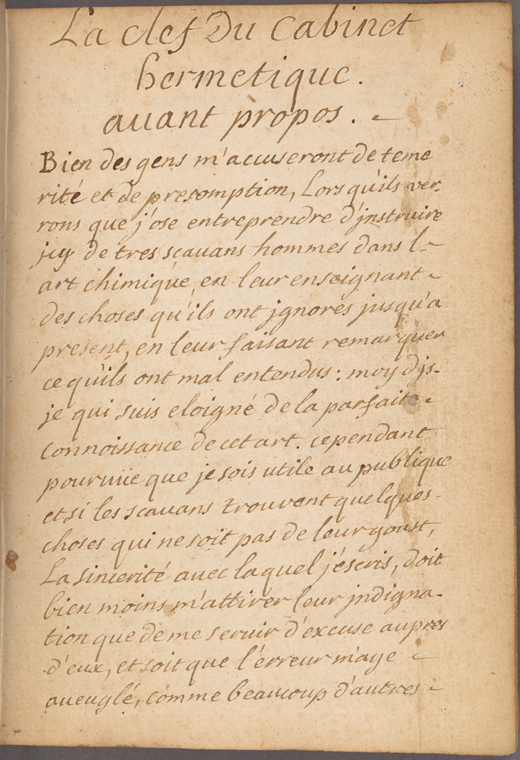 La clef Du Cabinet
hermetique.
auant propos.
Bien des gens m'accuseront de teme
rité et de presomption, Lors qu'ils ver-
rons que j'ose entreprendre d'jnstruire
jcy de tres scauans hommes dans l-
art chimique, en leur enseignant
des choses qu'ils ont jgnorés jusqu'a
present, en leur faisant remarquer
ce qu'ils ont mal entendus: moy djs-
je qui suis eloigné de la parfaite
Connoissance de cet art. cependant
pourvüe que je sois utile au publique
et si les scauans trouvent quelques-
choses qui ne soit pas de leur goust,
La sincerité avec laquel j'éscris, doit
bien moins m'attirer leur jndigna-
tion que de me seruir d'excuse aupres
d'eux, et soit que l'érreur m'aye
aueuglé, Comme beaucoup d'autres